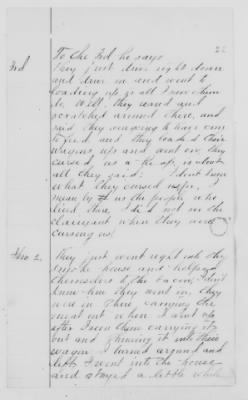 22
To the 3rd, he says:
3rd They just drove right down
and drove in and went to
loading up, is all I saw them
do. Well, they cursed and
scratched around there, and
said they were going to have corn
to feed, and they loaded their
wagons up and went on. They
cursed, as a of us, is about
all they said; I don't know
what they cursed us for,
mean by us the people who
lived there. I did not see the
claimant when they were
cursing us.
Alms 2. They just went right into the
smoke house and helped
themselves to the bacon; I don't
know how they went in. They
were in there, carrying the
meat out when I went up
after I seen them carrying it
out and throwing it into their
wagon I turned around and
left. I went into the house
and stayed a little while